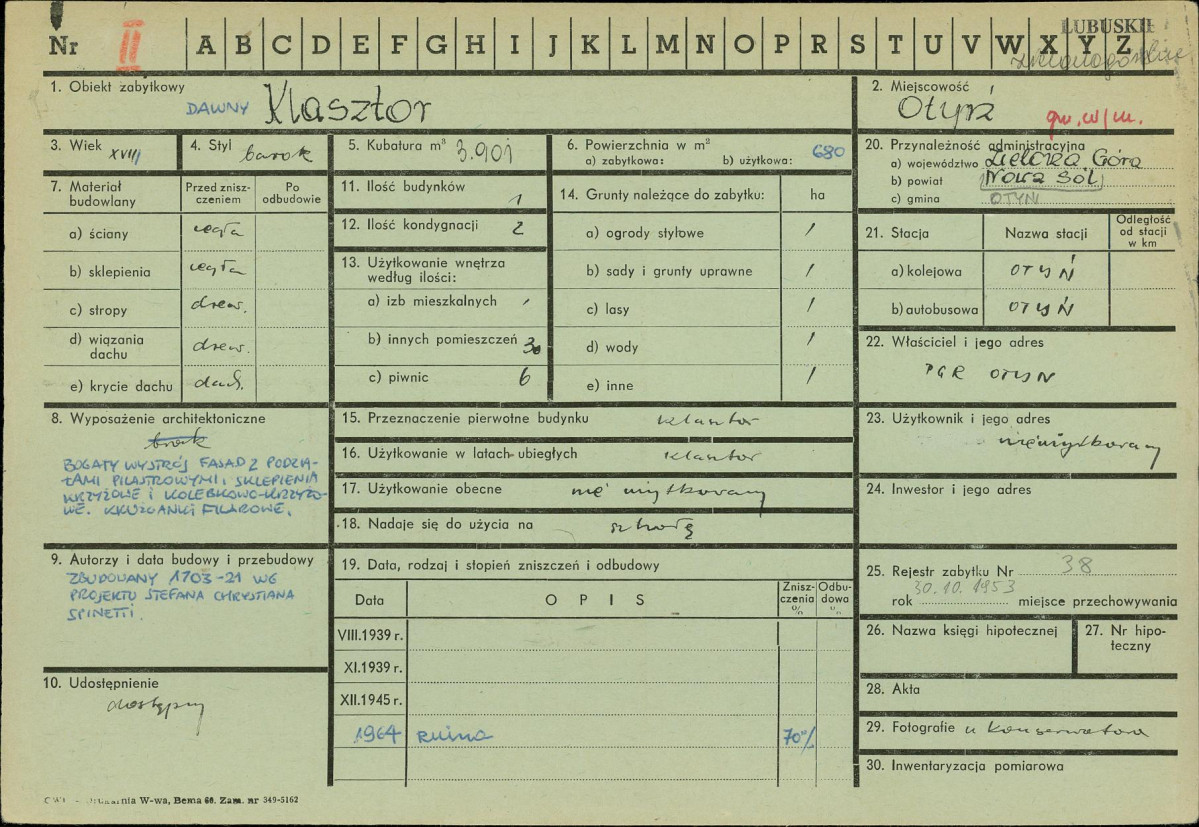 Nr II A B C D E F G H I J K L M N O P R S T U V W X Y Z
LUBUSKIE
1. Obiekt zabytkowy
DAWNY Klasztor
2. Miejscowość
Otyń
gw. w/m.
3. Wiek XVIII
4. Styl barok
5. Kubatura m³ 3.901
6. Powierzchnia w m²
a) zabytkowa: b) użytkowa: 680
20. Przynależność administracyjna
a) województwo Zielona Góra
b) powiat Nowa Sól
c) gmina OTYŃ
7. Materiał budowlany
Przed znisz-
czeniem
Po
odbudowie
a) ściany cegła
b) sklepienia cegła
c) stropy drew.
d) wiązania
dachu drew.
e) krycie dachu dach.
11. Ilość budynków 1
12. Ilość kondygnacji 2
13. Użytkowanie wnętrza
według ilości:
a) izb mieszkalnych /
b) innych pomieszczeń 30
c) piwnic 6
14. Grunty należące do zabytku: ha
a) ogrody stylowe /
b) sady i grunty uprawne /
c) lasy /
d) wody /
e) inne /
21. Stacja Nazwa stacji
Odległość
od stacji
w km
a) kolejowa OTYŃ
b) autobusowa OTYŃ
22. Właściciel i jego adres
PGR OTYŃ
8. Wyposażenie architektoniczne
brak
BOGATY WYSTRÓJ FASAD Z PODZIA-
ŁAMI PILASTROWYMI, SKLEPIENIA
KRZYŻOWE I KOLEBKOWO-KRZYŻO-
WE. KRUŻGANKI FILAROWE.
15. Przeznaczenie pierwotne budynku klasztor
16. Użytkowanie w latach ubiegłych klasztor
17. Użytkowanie obecne nie użytkowany
18. Nadaje się do użycia na szkołę
23. Użytkownik i jego adres
nieużytkowany
24. Inwestor i jego adres
9. Autorzy i data budowy i przebudowy
ZBUDOWANY 1703-21 WG
PROJEKTU STEFANA CHRYSTIANA
SPINETTI.
10. Udostępnienie
dostępny
19. Data, rodzaj i stopień zniszczeń i odbudowy
Data OPIS
Znisz-
czenia
%
Odbu-
dowa
%
VIII.1939 r.
XI.1939 r.
XII.1945 r.
1964 RUINA 70%
25. Rejestr zabytku Nr 38
rok 30.10.1953 miejsce przechowywania
26. Nazwa księgi hipotecznej
27. Nr hipo-
teczny
28. Akta
29. Fotografie u Konserwatora
30. Inwentaryzacja pomiarowa
Drukarnia W-wa, Bema 60. Zam. nr 349-5162